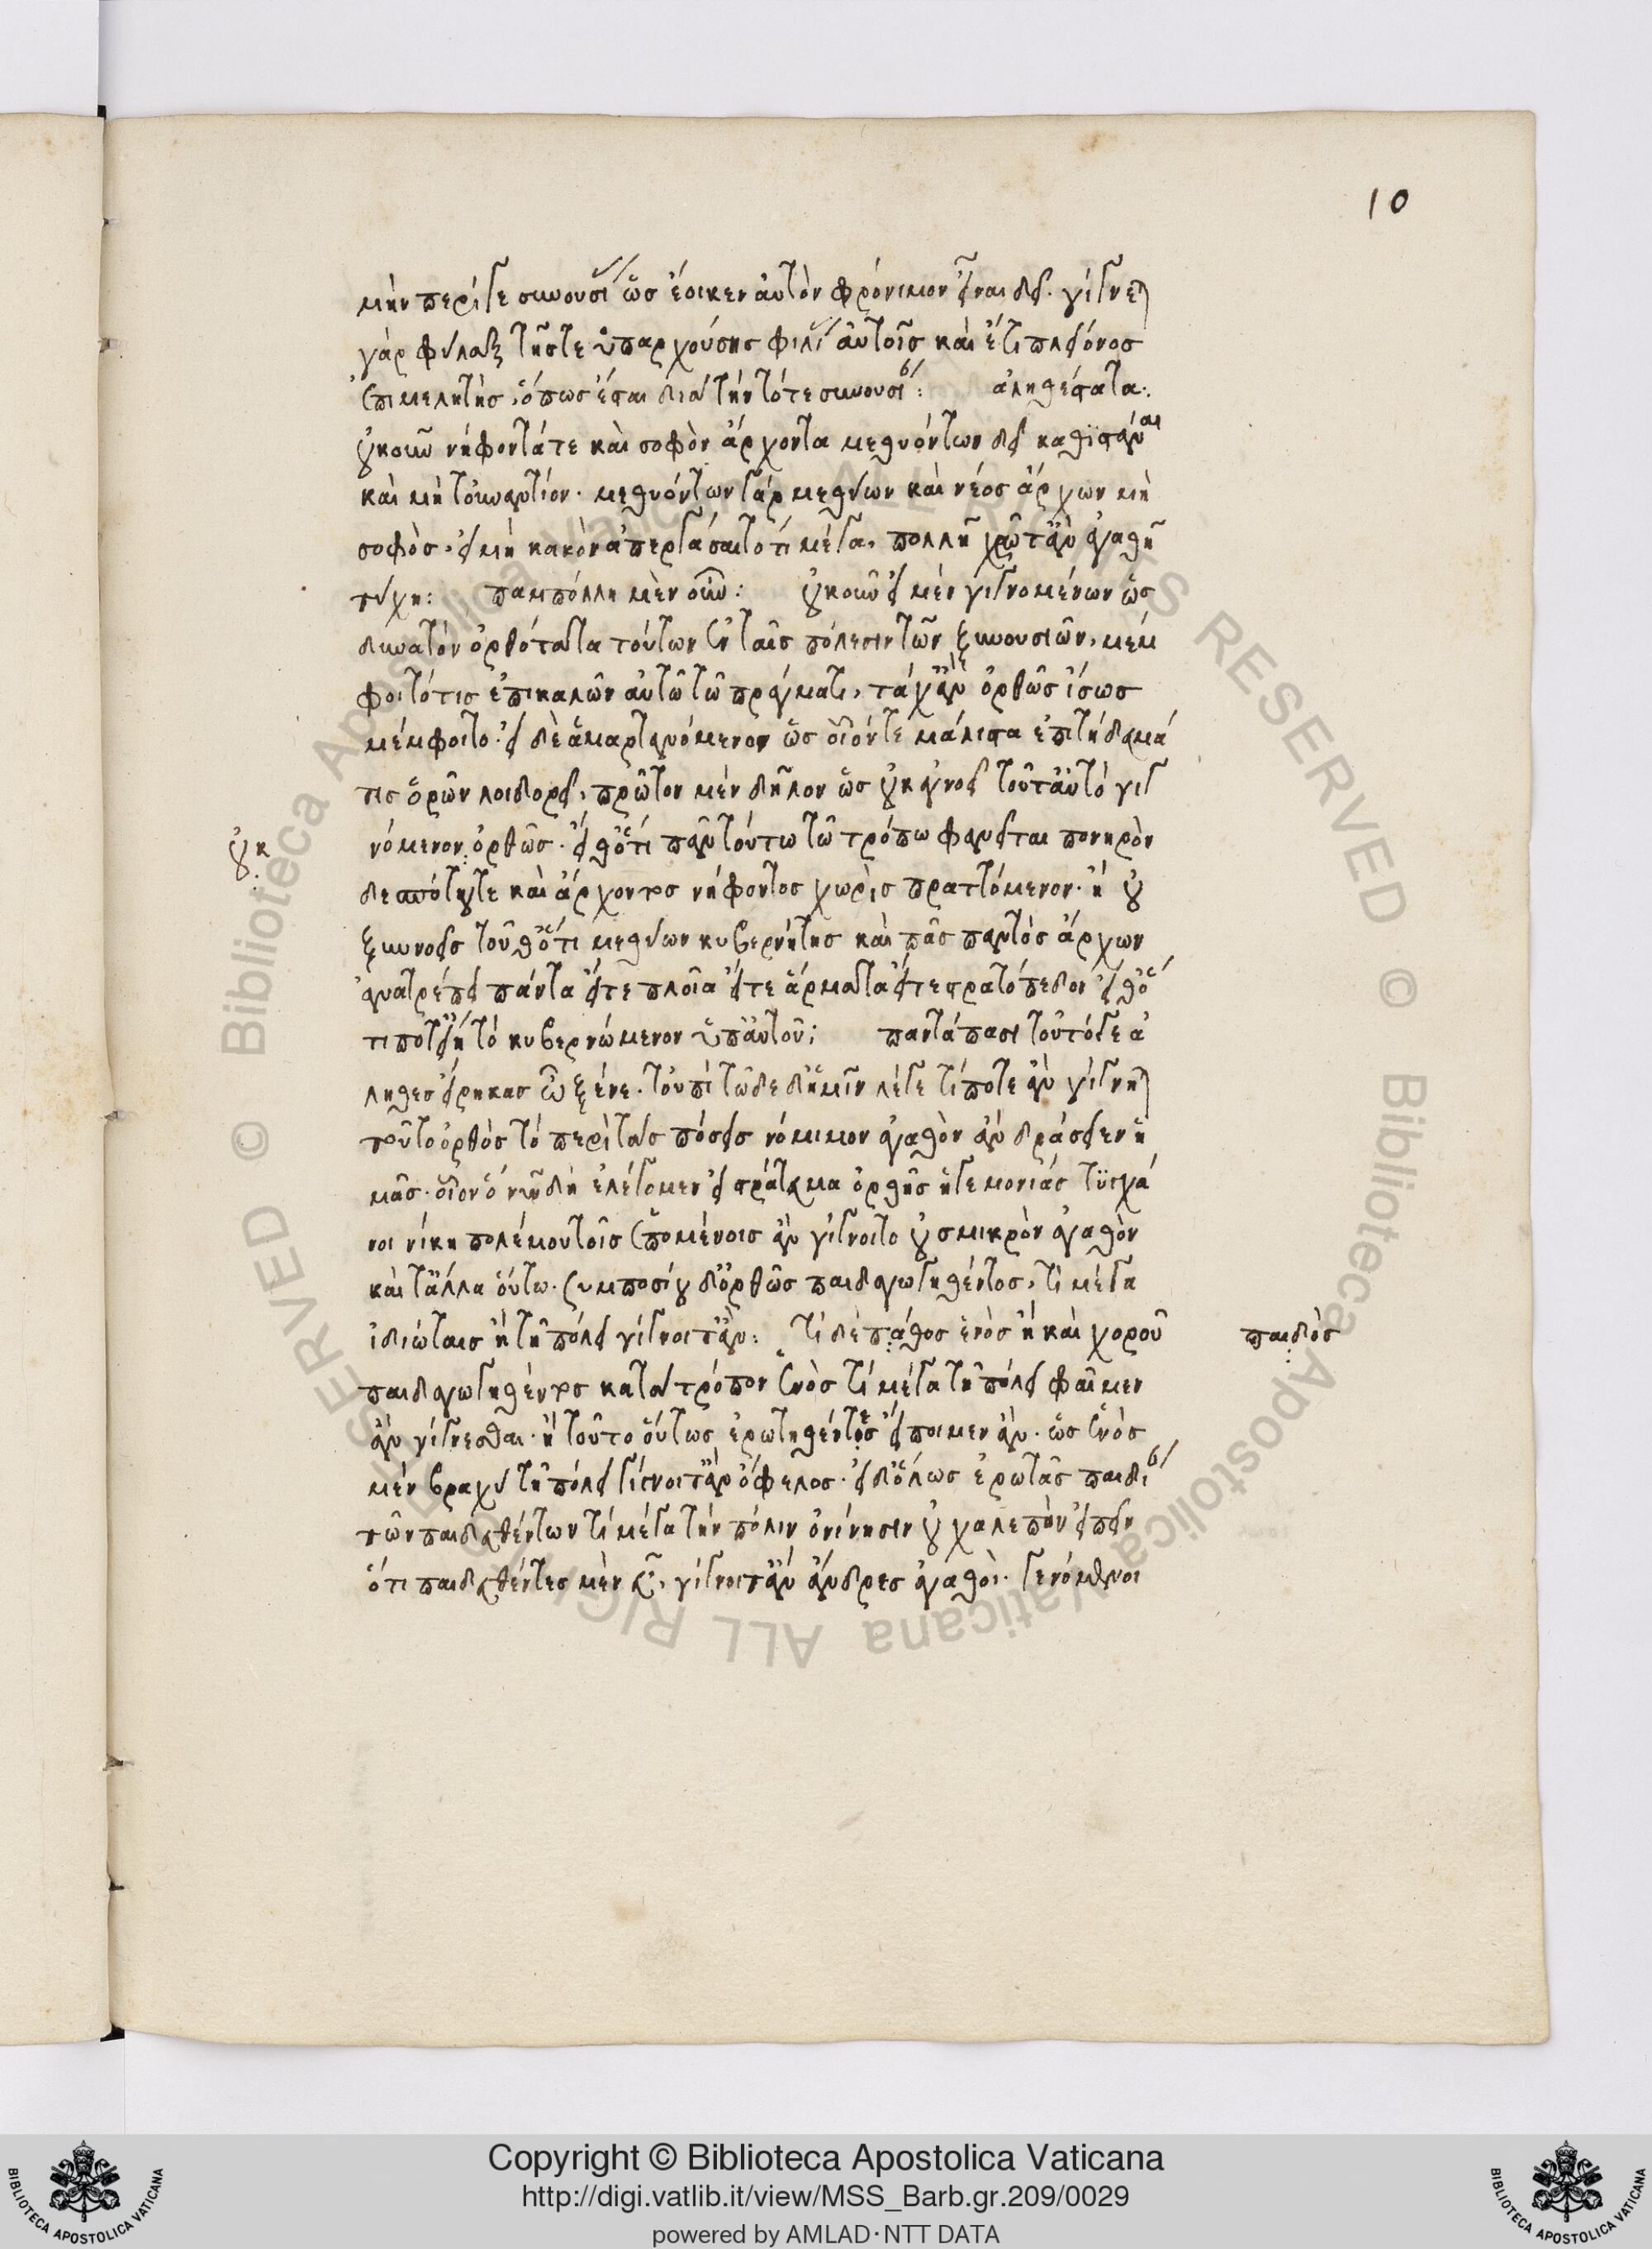 10
μὴν περί γε συνουσίας ὡς ἔοικεν αὐτὸν φρόνιμον εἶναι δεῖ. γίγνεται
γὰρ φύλαξ τῆς τε ὑπαρχούσης φιλίας αὐτοῖς καὶ ἔτι πλείονος
ἐπιμελητὴς, ὅπως ἔσται διὰ τὴν τότε συνουσίαν: ἀληθέστατα.
οὐκοῦν νήφοντά τε καὶ σοφὸν ἄρχοντα μεθυόντων δεῖ καθϊστάναι
καὶ μὴ τοὐναντίον. μεθυόντων γὰρ μεθύων καὶ νέος ἄρχων μὴ
σοφὸς, εἰ μὴ κακὸν ἀπεργάσαιτό τι μέγα, πολλῇ χρῷτ' ἂν ἀγαθῇ
τύχῃ: παμπόλλῃ μὲν οὖν: οὐκοῦν εἰ μὲν γιγνομένων ὡς
δυνατὸν ὀρθότατα τούτων ἐν ταῖς πόλεσιν τῶν ξυνουσιῶν, μέμ
φοιτό τις ἐπικαλῶν αὐτῷ τῷ πράγματι, τάχ' ἂν ὀρθῶς ἴσως
μέμφοιτο. εἰ δὲ ἁμαρτανόμενον ὡς οἷόν τε μάλιστα ἐπιτήδευμά
τις ὁρῶν λοιδορεῖ, πρῶτον μὲν δῆλον ὡς οὐκ ἀγνοεῖ τοῦτ' αὐτὸ γιγ
οὐκ
νόμενον ὀρθῶς. εἶθ' ὅτι πᾶν τούτῳ τῷ τρόπῳ φανεῖται πονηρὸν
δεσπότου τε καὶ ἄρχοντος νήφοντος χωρὶς πραττόμενον. ἢ οὐ
ξυννοεῖς τοῦθ' ὅτι μεθύων κυβερνήτης καὶ πᾶς παντὸς ἄρχων
ἀνατρέπει πάντα εἴτε πλοῖα εἴτε ἅρματα εἴτε στρατόπεδον εἴθ' ὅ
τι ποτ' εἴη τὸ κυβερνώμενον ὑπ' αὐτοῦ; παντάπασι τοῦτό γε ἀ
ληθες εἴρηκας ὦ ξένε. τοὐπὶ τῷδε δ' ἡμῖν λέγε τί ποτε ἂν γίγνηται
τοῦτο ὀρθὸς τὸ περὶ τὰς πόσεις νόμιμον ἀγαθὸν ἂν δράσειεν ἡ
μᾶς. οἷον ὃ νῦν δὴ ἐλέγομεν εἰ στράτευμα ὀρθῆς ἡγεμονίας τϋγχά
νοι νίκη πολέμου τοῖς ἑπομένοις ἂν γίγνοιτο οὐ σμικρὸν ἀγαθὸν
καὶ τἆλλα οὕτω. συμποσίου δ' ὀρθῶς παιδαγωγηθέντος, τί μέγα
ἰδιώταις ἢ τῇ πόλει γίγνοιτ' ἄν: τί δὲ πάθος ἑνὸς ἢ καὶ χοροῦ
παιδὸς
παιδαγωγηθέντος κατὰ τρόπον ἑνὸς τί μέγα τῇ πόλει φαῖμεν
ἂν γίγνεσθαι. ἢ τοῦτο οὕτως ἐρωτηθέντες εἴποιμεν ἄν. ὡς ἑνὸς
μὲν βραχύ τῇ πόλει γίγνοιτ' ἂν ὄφελος. εἰ δ' ὅλως ἐρωτᾷς παιδείαν
τῶν παιδευθέντων τί μέγα τὴν πόλιν ὀνίνησιν οὐ χαλεπὸν εἰπεῖν
ὅτι παιδευθέντες μὲν εὖ, γίγνοιτ' ἂν ἄνδρες ἀγαθοὶ. γενόμενοι
Copyright © Biblioteca Apostolica Vaticana
http://digi.vatlib.it/view/MSS_Barb.gr.209/0029
powered by AMLAD·NTT DATA